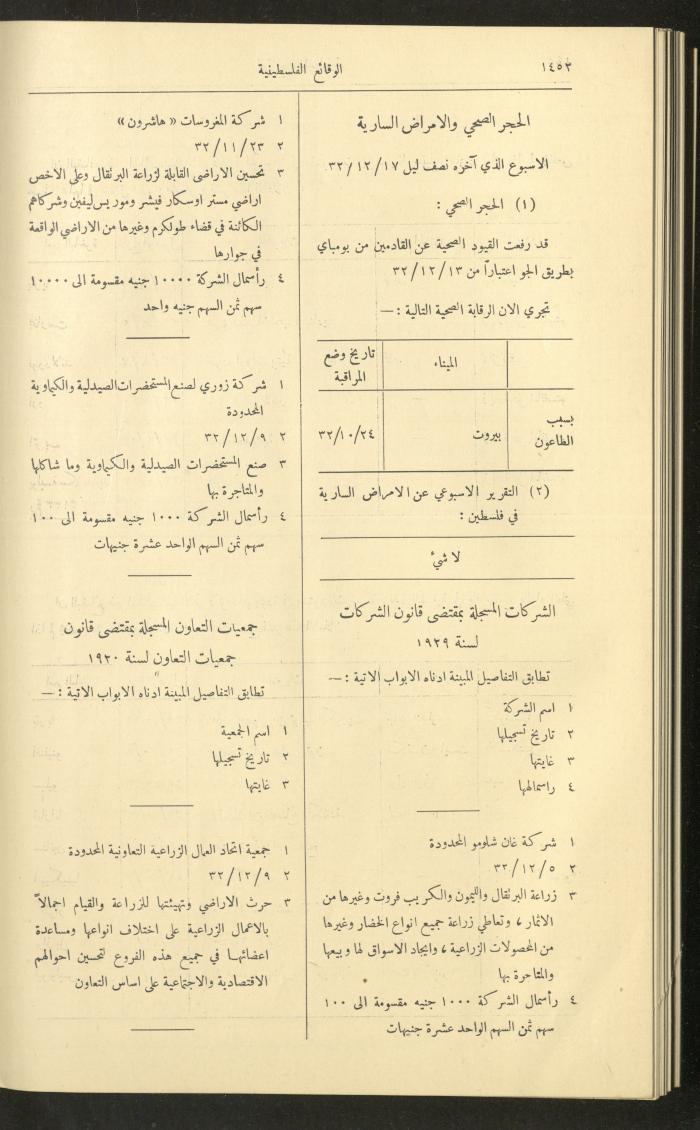 ١٤٥٣
الوقائع الفلسطينية
الحجر الصحي والامراض السارية
الاسبوع الذي آخره نصف ليل ٣٢/١٢/١٧
(١) الحجر الصحي :
قد رفعت القيود الصحية عن القادمين من بومباي
بطريق الجو اعتباراً من ٣٢/١٢/١٣
تجري الان الرقابة الصحية التالية : —
الميناء
تاريخ وضع
المراقبة
بسبب
الطاعون
بيروت
٣٢/١٠/٢٤
(٢) التقرير الاسبوعي عن الامراض السارية
في فلسطين :
لا شئ
الشركات المسجلة بمقتضى قانون الشركات
لسنة ١٩٢٩
تطابق التفاصيل المبينة ادناه الابواب الاتية : —
١ اسم الشركة
٢ تاريخ تسجيلها
٣ غايتها
٤ راسمالها
١ شركة غان شلومو المحدودة
٢ ٣٢/١٢/٥
٣ زراعة البرتقال والليمون والكريب فروت وغيرها من
الاثمار ، وتعاطي زراعة جميع انواع الخضار وغيرها
من المحصولات الزراعية ، وايجاد الاسواق لها وبيعها
والمتاجرة بها
٤ رأسمال الشركة ١٠٠٠ جنيه مقسومة الى ١٠٠
سهم ثمن السهم الواحد عشرة جنيهات
١ شركة المغروسات « هاشرون »
٢ ٣٢/١١/٢٣
٣ تحسين الاراضي القابلة لزراعة البرتقال وعلى الاخص
اراضي مستر اوسكار فيشر وموريس ليفين وشركاهم
الكائنة في قضاء طولكرم وغيرها من الاراضي الواقعة
في جوارها
٤ رأسمال الشركة ١٠٠٠٠ جنيه مقسومة الى ١٠،٠٠٠
سهم ثمن السهم جنيه واحد
١ شركة زوري لصنع المستحضرات الصيدلية والكياوية
المحدودة
٢ ٣٢/١٢/٩
٣ صنع المستحضرات الصيدلية والكياوية وما شاكلها
والمتاجرة بها
٤ رأسمال الشركة ١٠٠٠ جنيه مقسومة الى ١٠٠
سهم ثمن السهم الواحد عشرة جنيهات
جمعيات التعاون المسجلة بمقتضى قانون
جمعيات التعاون لسنة ١٩٢٠
تطابق التفاصيل المبينة ادناه الابواب الاتية : —
١ اسم الجمعية
٢ تاريخ تسجيلها
٣ غايتها
١ جمعية اتحاد العمال الزراعية التعاونية المحدودة
٢ ٣٢/١٢/٩
٣ حرث الاراضي وتهيئتها للزراعة والقيام اجمالاً
بالاعمال الزراعية على اختلاف انواعها ومساعدة
اعضائها في جميع هذه الفروع لتحسين احوالهم
الاقتصادية والاجتماعية على اساس التعاون